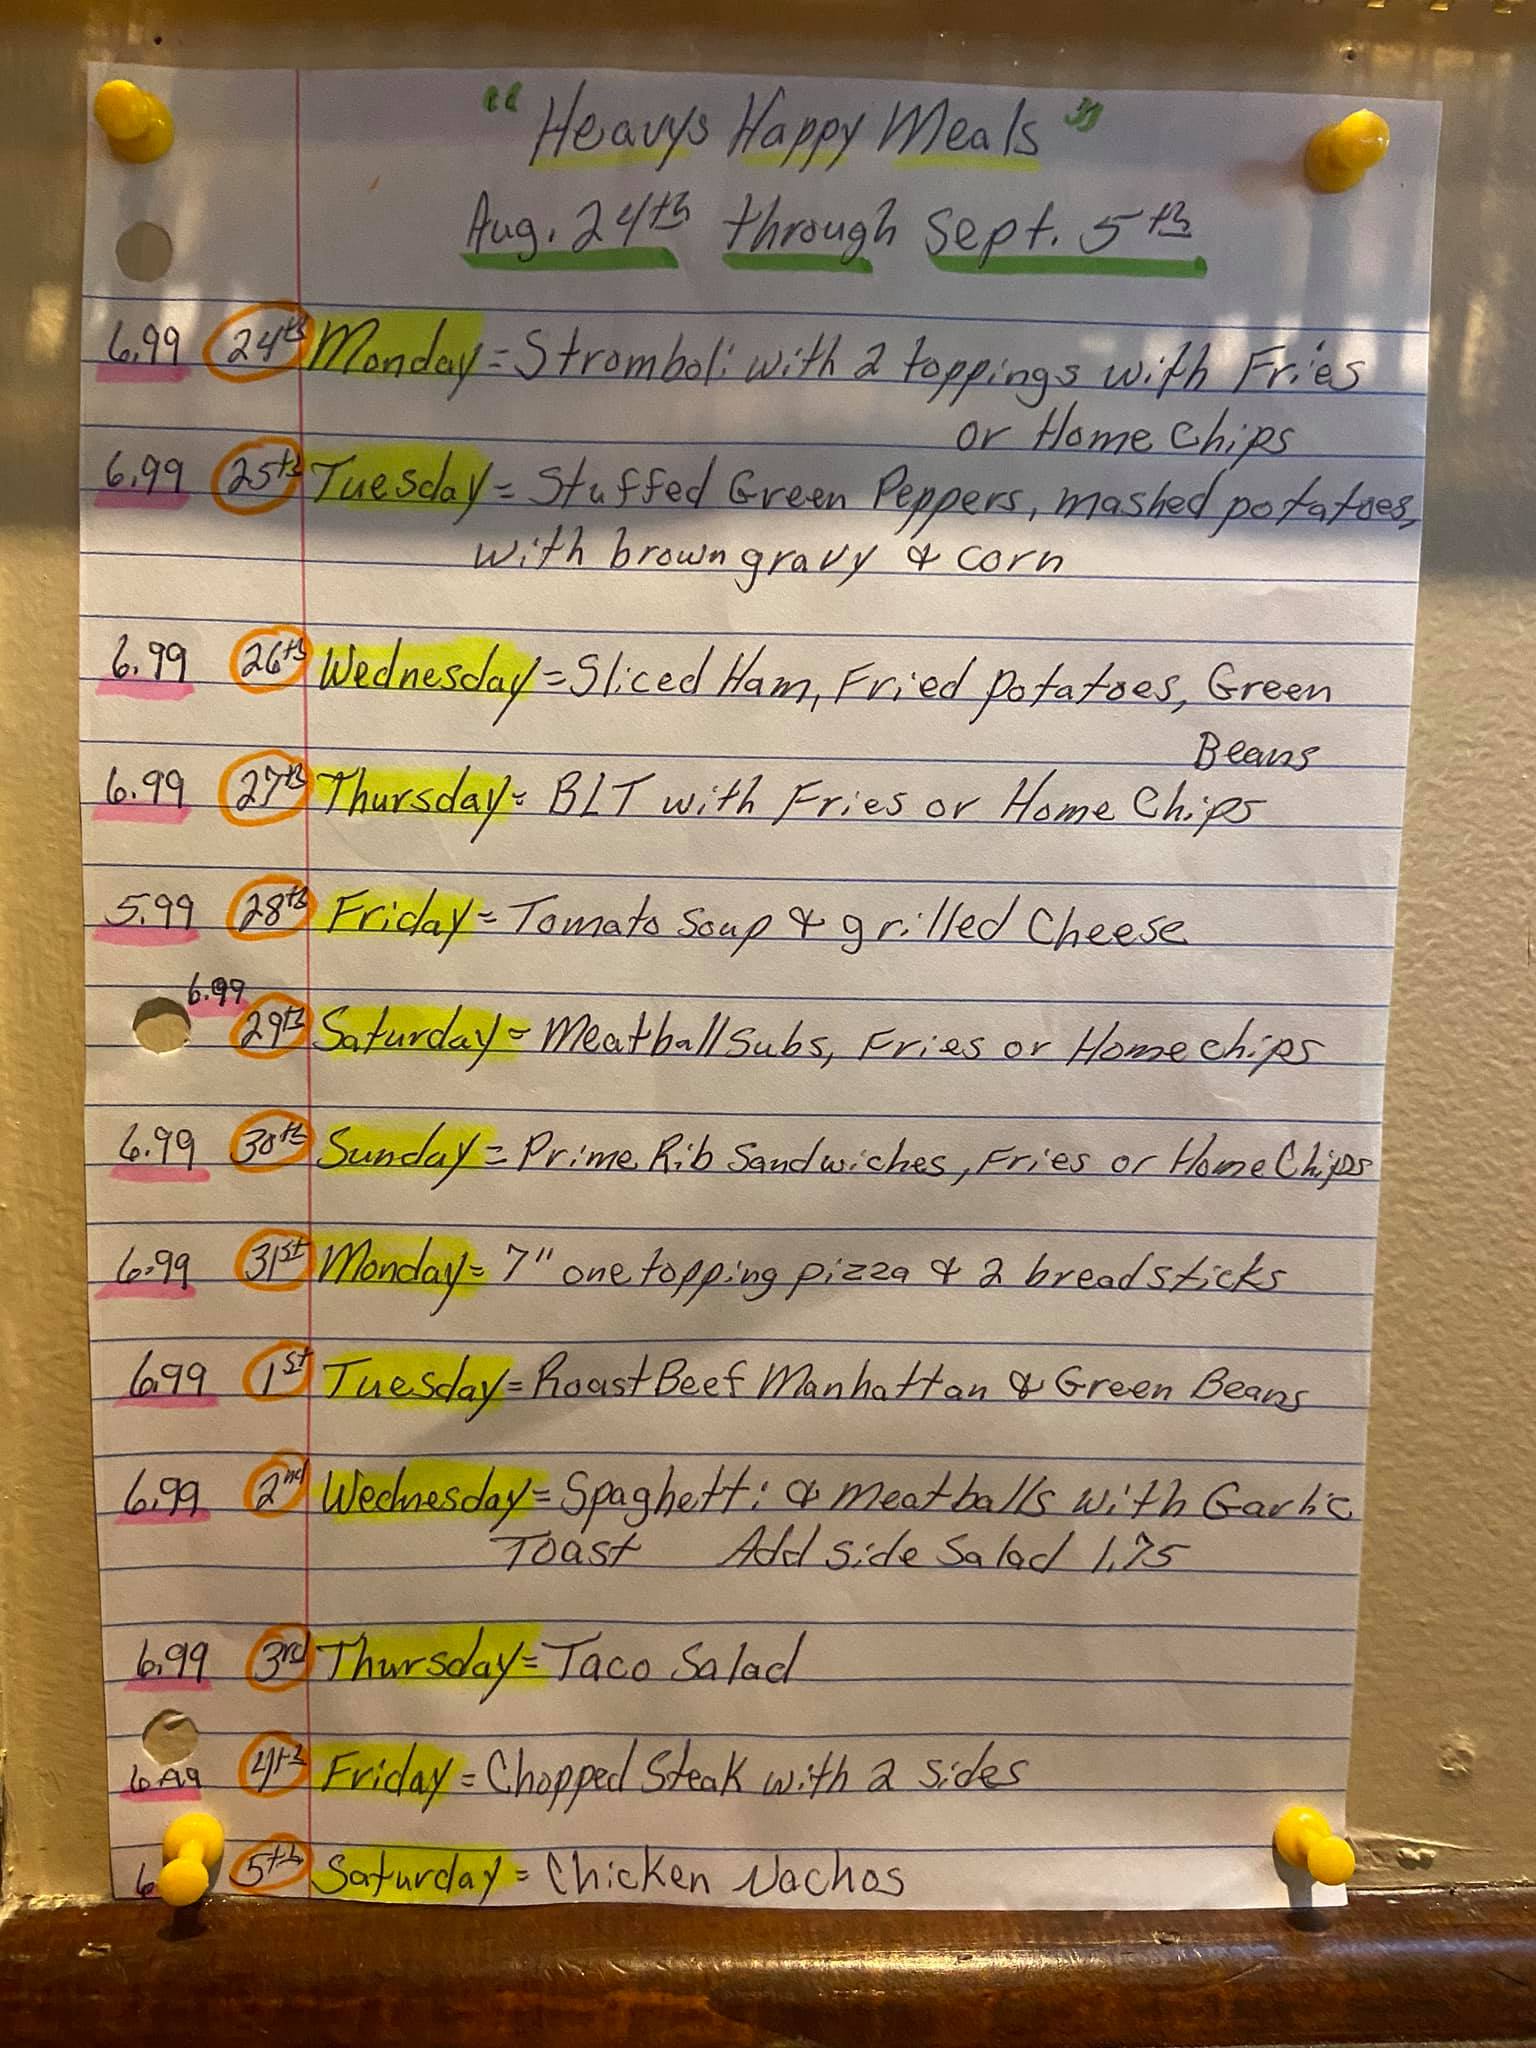 "Heavys Happy Meals"
Aug. 24th through Sept. 5th
6.99 24th Monday = Stromboli with 2 toppings with Fries
or Home Chips
6.99 25th Tuesday = Stuffed Green Peppers, mashed potatoes,
with brown gravy & corn
6.99 26th Wednesday = Sliced Ham, Fried potatoes, Green
Beans
6.99 27th Thursday = BLT with Fries or Home Chips
5.99 28th Friday = Tomato Soup & grilled Cheese
6.99
29th Saturday = Meatball Subs, Fries or Home chips
6.99 30th Sunday = Prime Rib Sandwiches, Fries or Home Chips
6.99 31st Monday = 7" one topping pizza & 2 breadsticks
6.99 1st Tuesday = Roast Beef Manhattan & Green Beans
6.99 2nd Wednesday = Spaghetti & meatballs with Garlic
Toast Add side Salad 1.75
6.99 3rd Thursday = Taco Salad
6.99 4th Friday = Chopped Steak with 2 sides
5th Saturday = Chicken Nachos